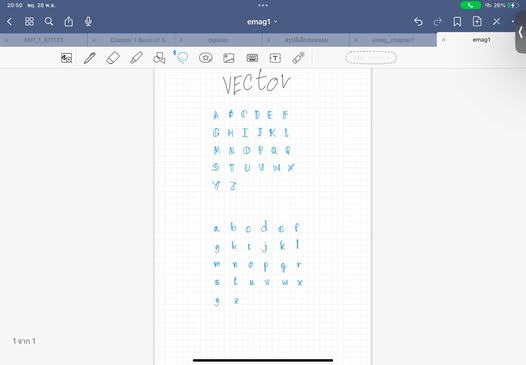 20:50 พฤ. 28 พ.ย. 26%
emag1
Chapter 1 Basic of S.
สรุปอิเล็กทรอนิกส์
emag_chapter1
emag1
VECTOR
A B C D E F
G H I J K L
M N O P Q R
S T U V W X
Y Z
a b c d e f
g h i j k l
m n o p q r
s t u v w x
y z
1 จาก 1